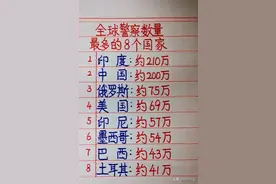 全球警察数量
最多的8个国家
1 印度:约210万
2 中国:约200万
3 俄罗斯:约75万
4 美国:约69万
5 印尼:约57万
6 墨西哥:约54万
7 巴西:约43万
8 土耳其:约41万